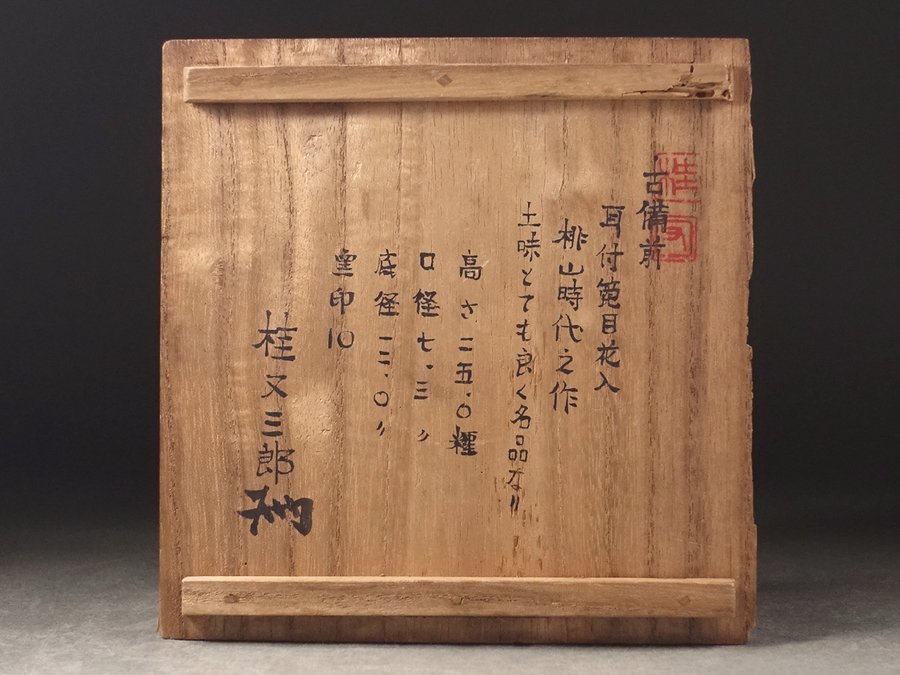 古備前
耳付箆目花入
桃山時代之作
土味とても良く名品なり
高さ二五.〇糎
口径七.三〃
底径一二.〇〃
窯印10
桂又三郎